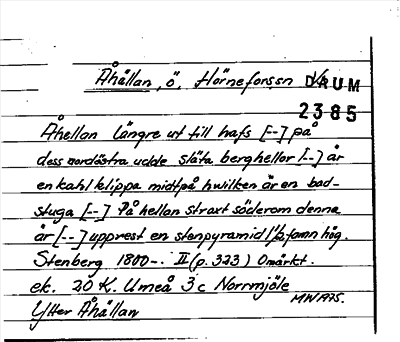 Åhällan, ö, Hörneforssn Vb
DAUM
2385
Åhellan längre ut till hafs [--] på
dess nordöstra udde släta berghellor [--] är
en kahl klippa midtpå hwilken är en bad-
stuga [--] På hellan straxt söderom denna
är [--] upprest en stenpyramid 1 1/2 famn hög.
Stenberg 1800-. II (p. 323) Omärkt.
ek. 20 K. Umeå 3c Norrmjöle
MW 1975.
Ytter Åhällan